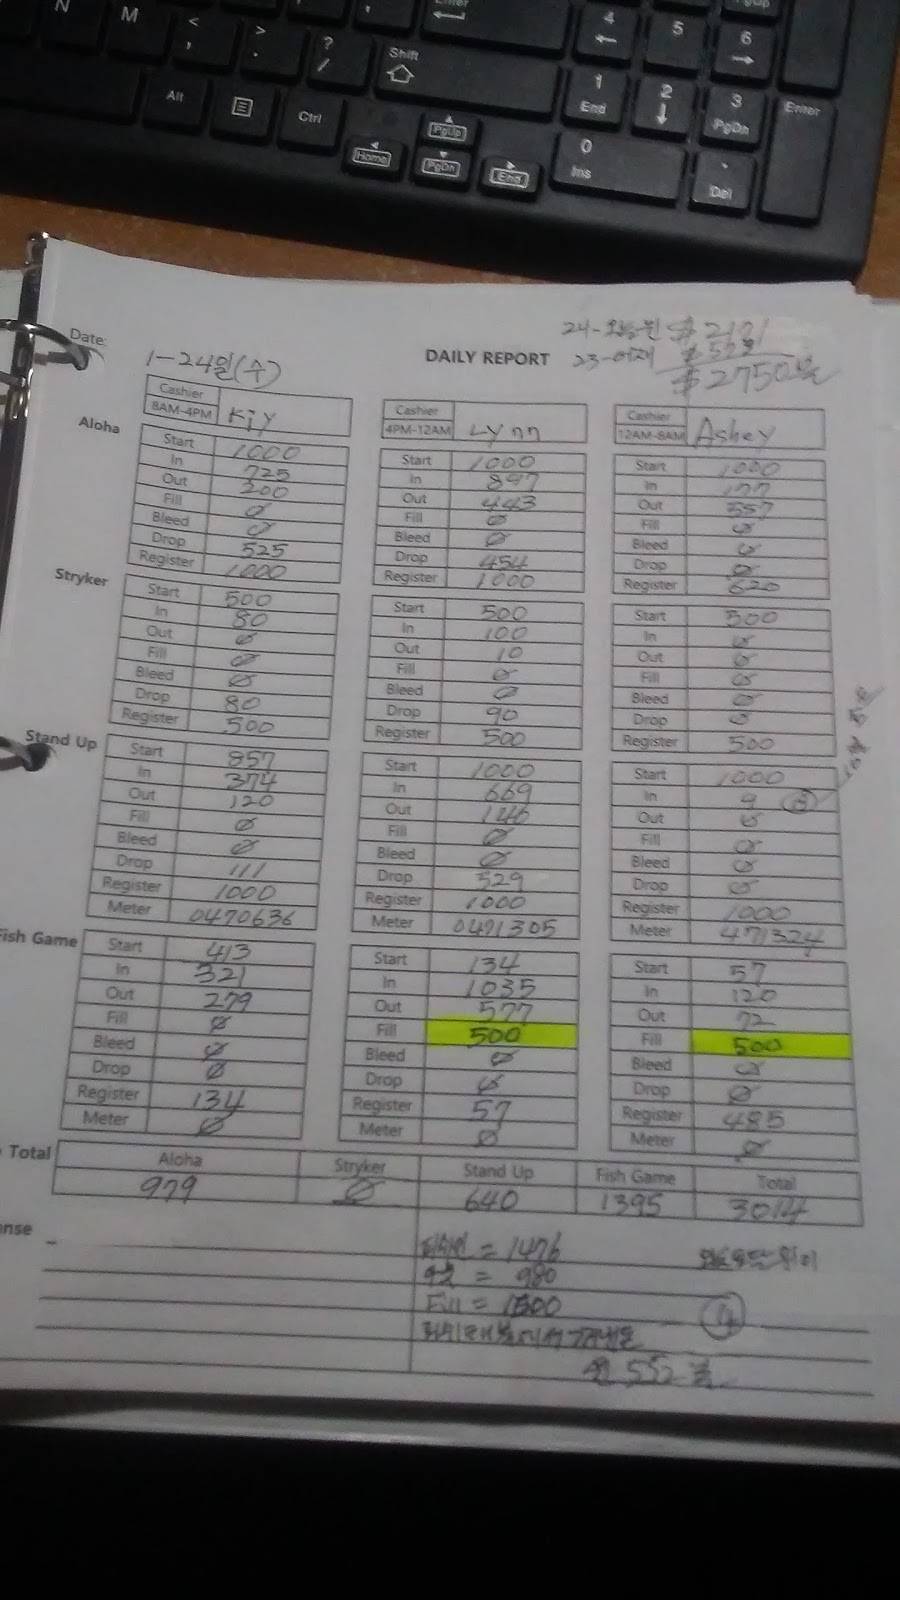 N M < , > . ? / Shift Enter 4 5 6
Alt Ctrl 1 End 2 3 PgDn Enter
Home PgUp PgDn End 0 Ins . Del
24-
$2191
Date:
DAILY REPORT
23-어제
1-24일(수)
$2750불
Cashier 8AM-4PM Kiy
Cashier 4PM-12AM Lynn
Cashier 12AM-8AM Ashey
Aloha
Start 1000 Start 1000 Start 1000
In 725 In 897 In 177
Out 200 Out 443 Out 557
Fill Ø Fill Ø Fill Ø
Bleed Ø Bleed Ø Bleed Ø
Drop 525 Drop 454 Drop Ø
Register 1000 Register 1000 Register 620
Stryker
Start 500 Start 500 Start 500
In 80 In 100 In Ø
Out Ø Out 10 Out Ø
Fill Ø Fill Ø Fill Ø
Bleed Ø Bleed Ø Bleed Ø
Drop 80 Drop 90 Drop Ø
Register 500 Register 500 Register 500
Stand Up
Start 857 Start 1000 Start 1000
In 374 In 669 In 9
Out 120 Out 146 Out Ø
Fill Ø Fill Ø Fill Ø
Bleed Ø Bleed Ø Bleed Ø
Drop 111 Drop 529 Drop Ø
Register 1000 Register 1000 Register 1000
Meter 0470636 Meter 0471305 Meter 471324
Fish Game
Start 413 Start 134 Start 57
In 321 In 1035 In 120
Out 279 Out 577 Out 72
Fill Ø Fill 500 Fill 500
Bleed Ø Bleed Ø Bleed Ø
Drop Ø Drop Ø Drop Ø
Register 134 Register 57 Register 485
Meter Ø Meter Ø Meter Ø
Total Aloha Stryker Stand Up Fish Game Total
979 Ø 640 1395 3014
nse
= 1476
= 980
Fill = 1500
552 불